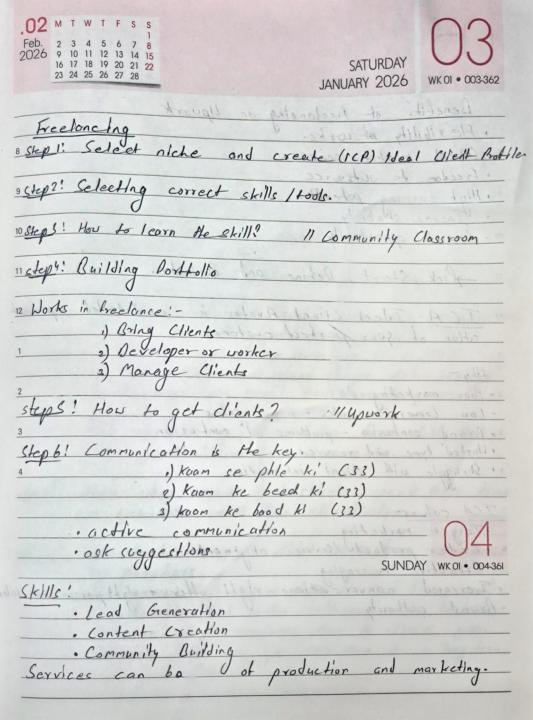 .02
Feb.
2026
M T W T F S S
1
2 3 4 5 6 7 8
9 10 11 12 13 14 15
16 17 18 19 20 21 22
23 24 25 26 27 28
SATURDAY
JANUARY 2026
03
WK 01 • 003-362
Freelancing
8 Step 1: Select niche and create (ICP) Ideal Client Profile.
9 Step 2: Selecting correct skills / tools.
10 Step 3: How to learn the skill? // Community Classroom
11 Step 4: Building Portfolio
12 Works in freelance :-
1) Bring Clients
1 2) Developer or worker
3) Manage Clients
2
Step 5: How to get clients? // Upwork
3
Step 6: Communication is the key.
4 1) Kaam se phle ki (33)
2) Kaam ke beed ki (33)
3) Kaam ke baad ki (33)
• active communication
• ask suggestions
04
SUNDAY WK 01 • 004-361
Skills:
• Lead Generation
• Content Creation
• Community Building
Services can be of production and marketing.